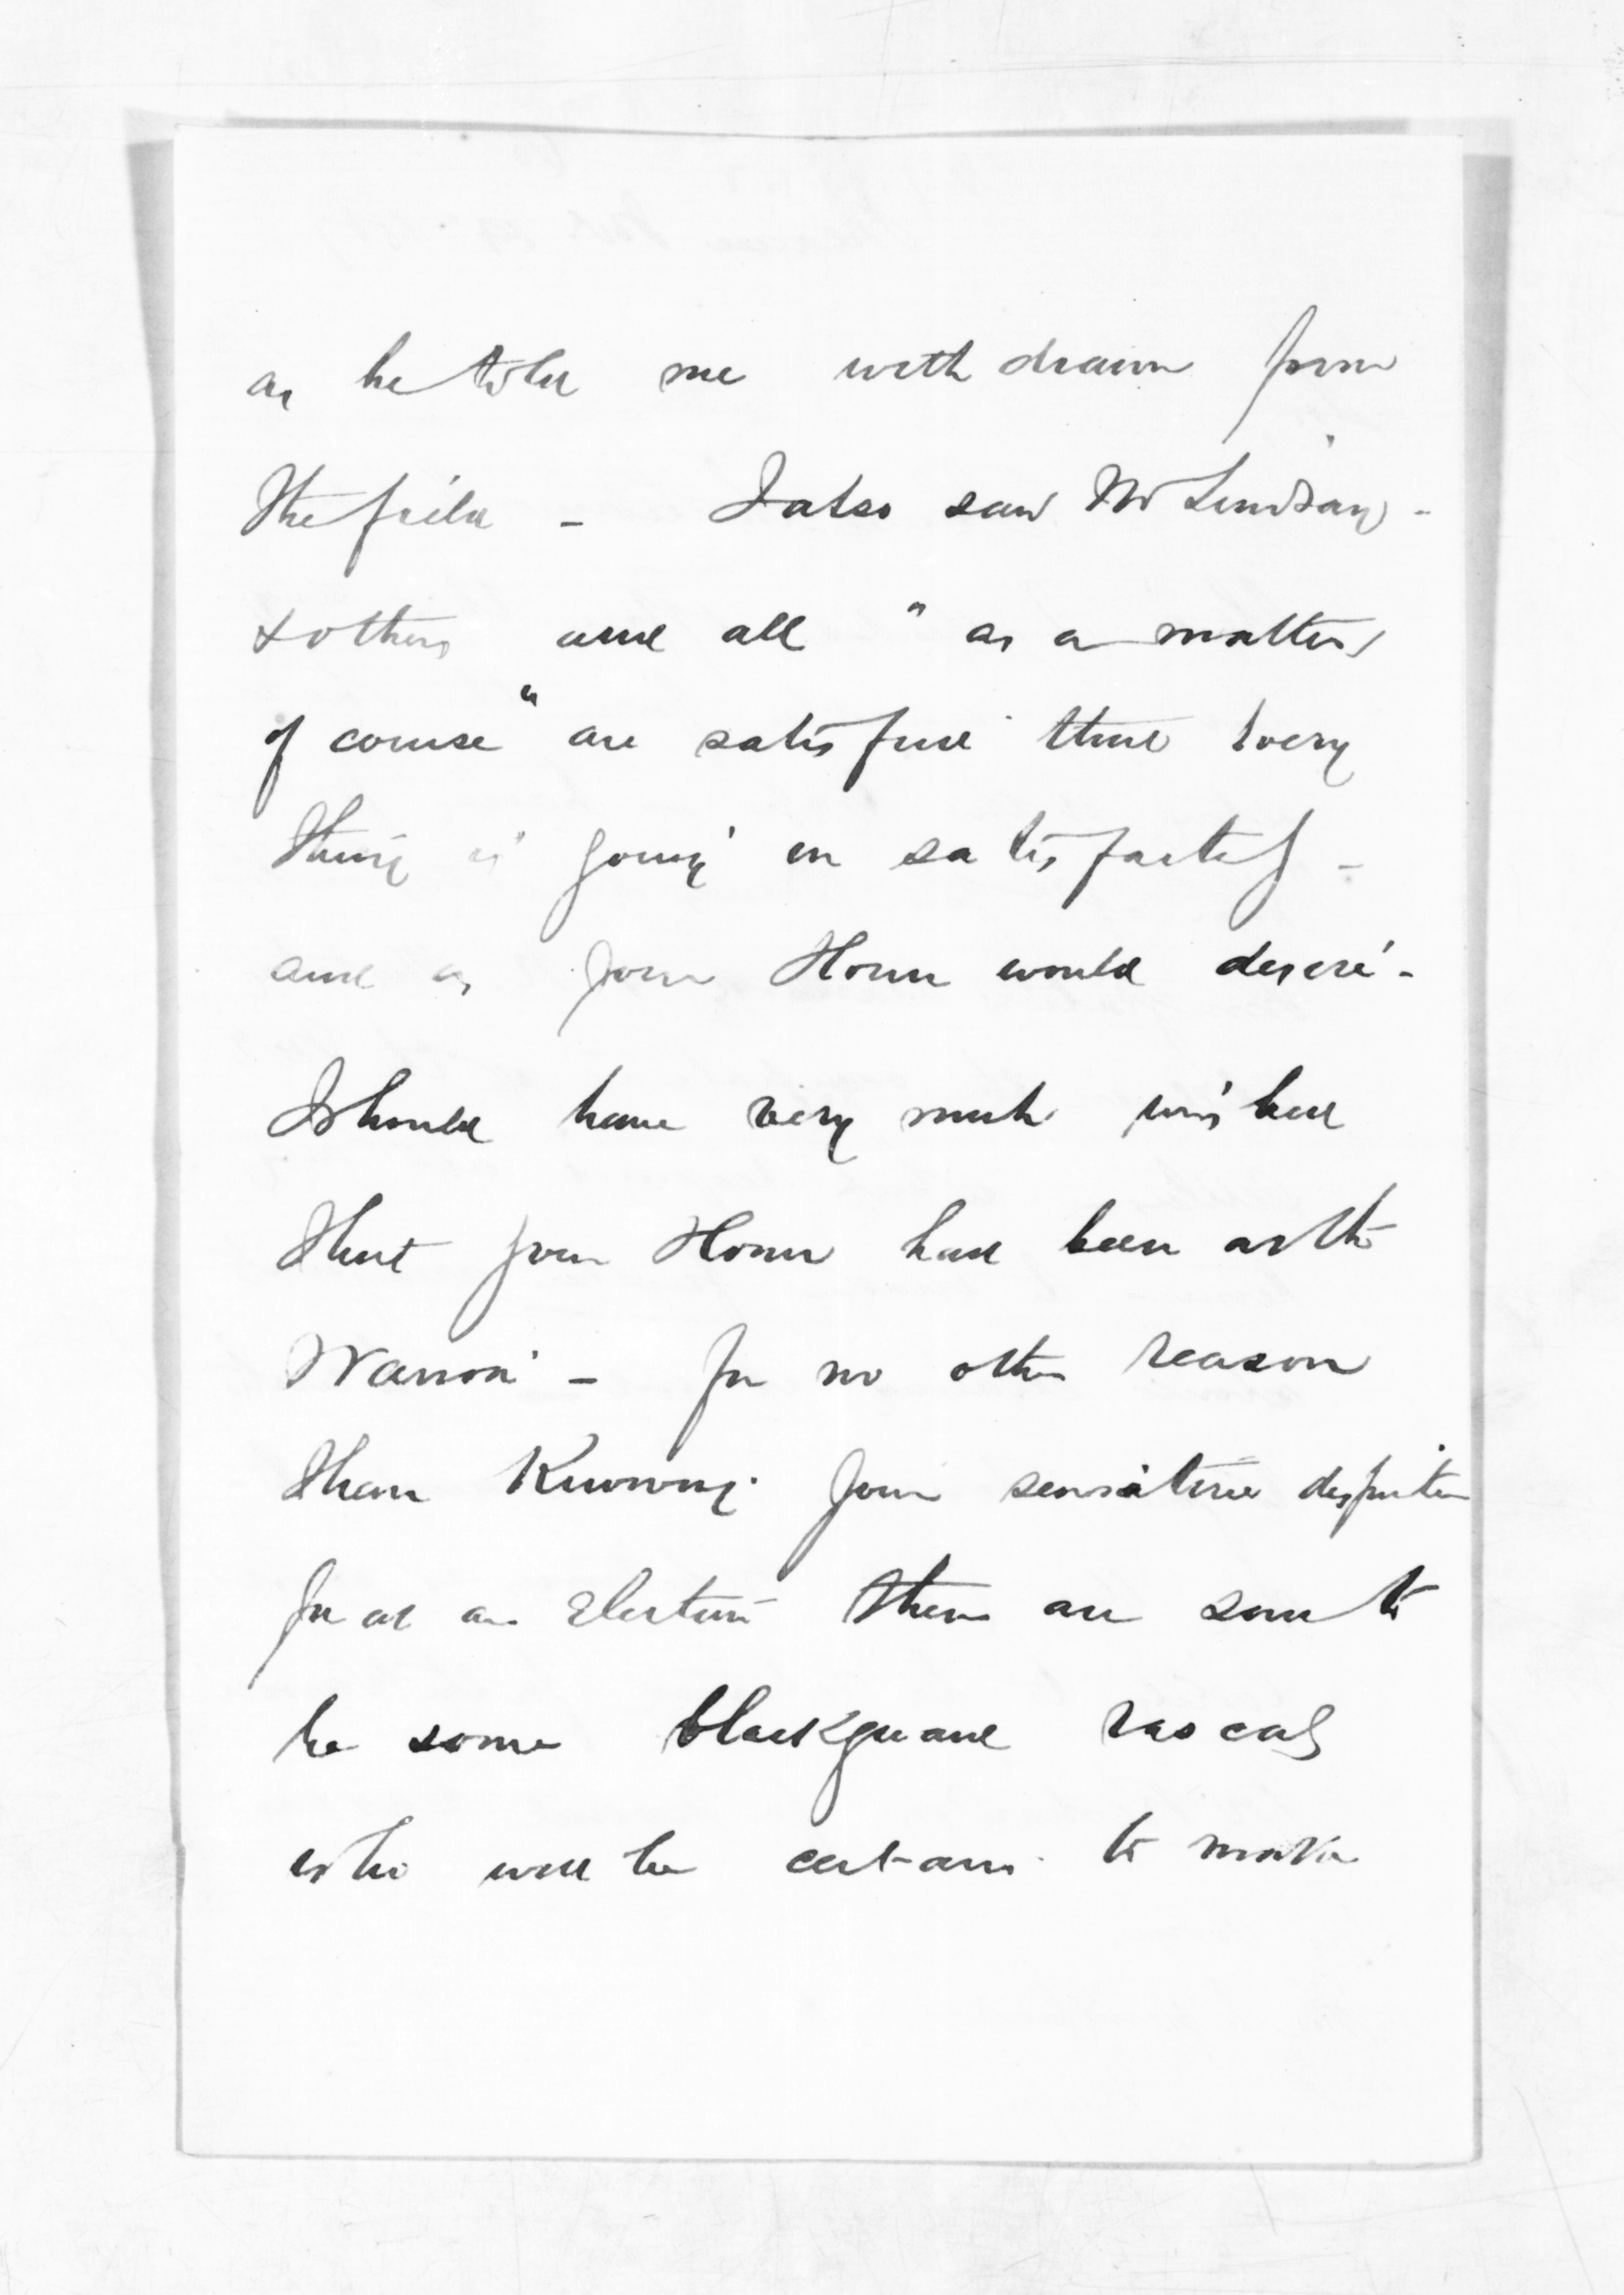 as he told me with drawn from
the field - I also saw Mr Lindsay -
& others and all " as a matter
of course " are satisfied that every
thing is going on satisfacty -
and as your Honor would desire -
I should have very much wished
that your Honor had been at the
Wairoa - for no other reason
than Knowing your sensitive
for at an Election there are sure to
be some blackguard rascals
who will be certain to make